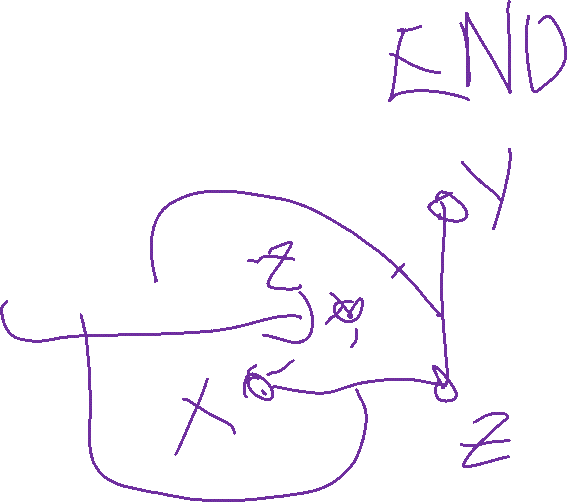 END
Y
Z
X
Z